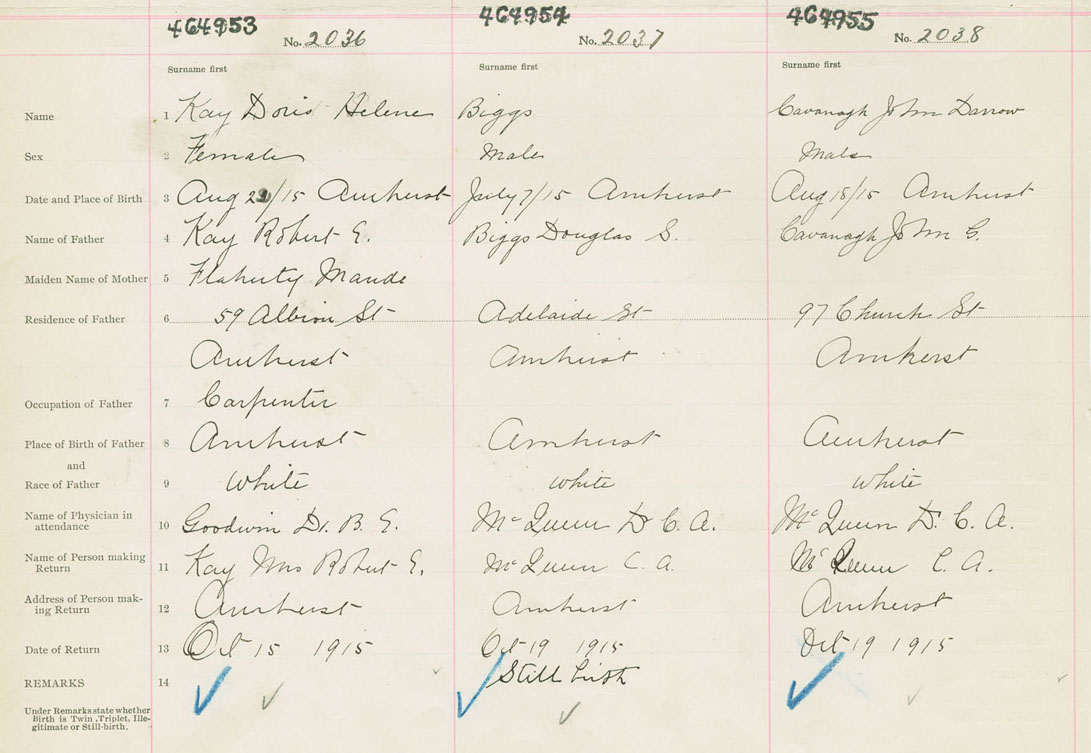 464953 464954 464955
No. 2036 No. 2037 No. 2038
Surname first Surname first Surname first
Name 1 Kay Doris Helene Biggs Cavanagh John Darrow
Sex 2 Female Male Male
Date and Place of Birth 3 Aug /15 Amherst July 7/15 Amherst Aug 15/15 Amherst
Name of Father 4 Kay Robert E. Biggs Douglas S. Cavanagh John G.
Maiden Name of Mother 5 Flaherty Maude
Residence of Father 6 59 Albion St Adelaide St 97 Church St
Amherst Amherst Amherst
Occupation of Father 7 Carpenter
Place of Birth of Father 8 Amherst Amherst Amherst
and
Race of Father 9 White White White
Name of Physician in
attendance 10 Goodwin Dr. B. E. McQueen D C. A. McQueen D. C. A.
Name of Person making
Return 11 Kay Mrs Robert E. McQueen C. A. McQueen C. A.
Address of Person mak-
ing Return 12 Amherst Amherst Amherst
Date of Return 13 Oct 15 1915 Oct 19 1915 Oct 19 1915
REMARKS 14 Still birth
Under Remarks state whether
Birth is Twin, Triplet, Ille-
gitimate or Still-birth.